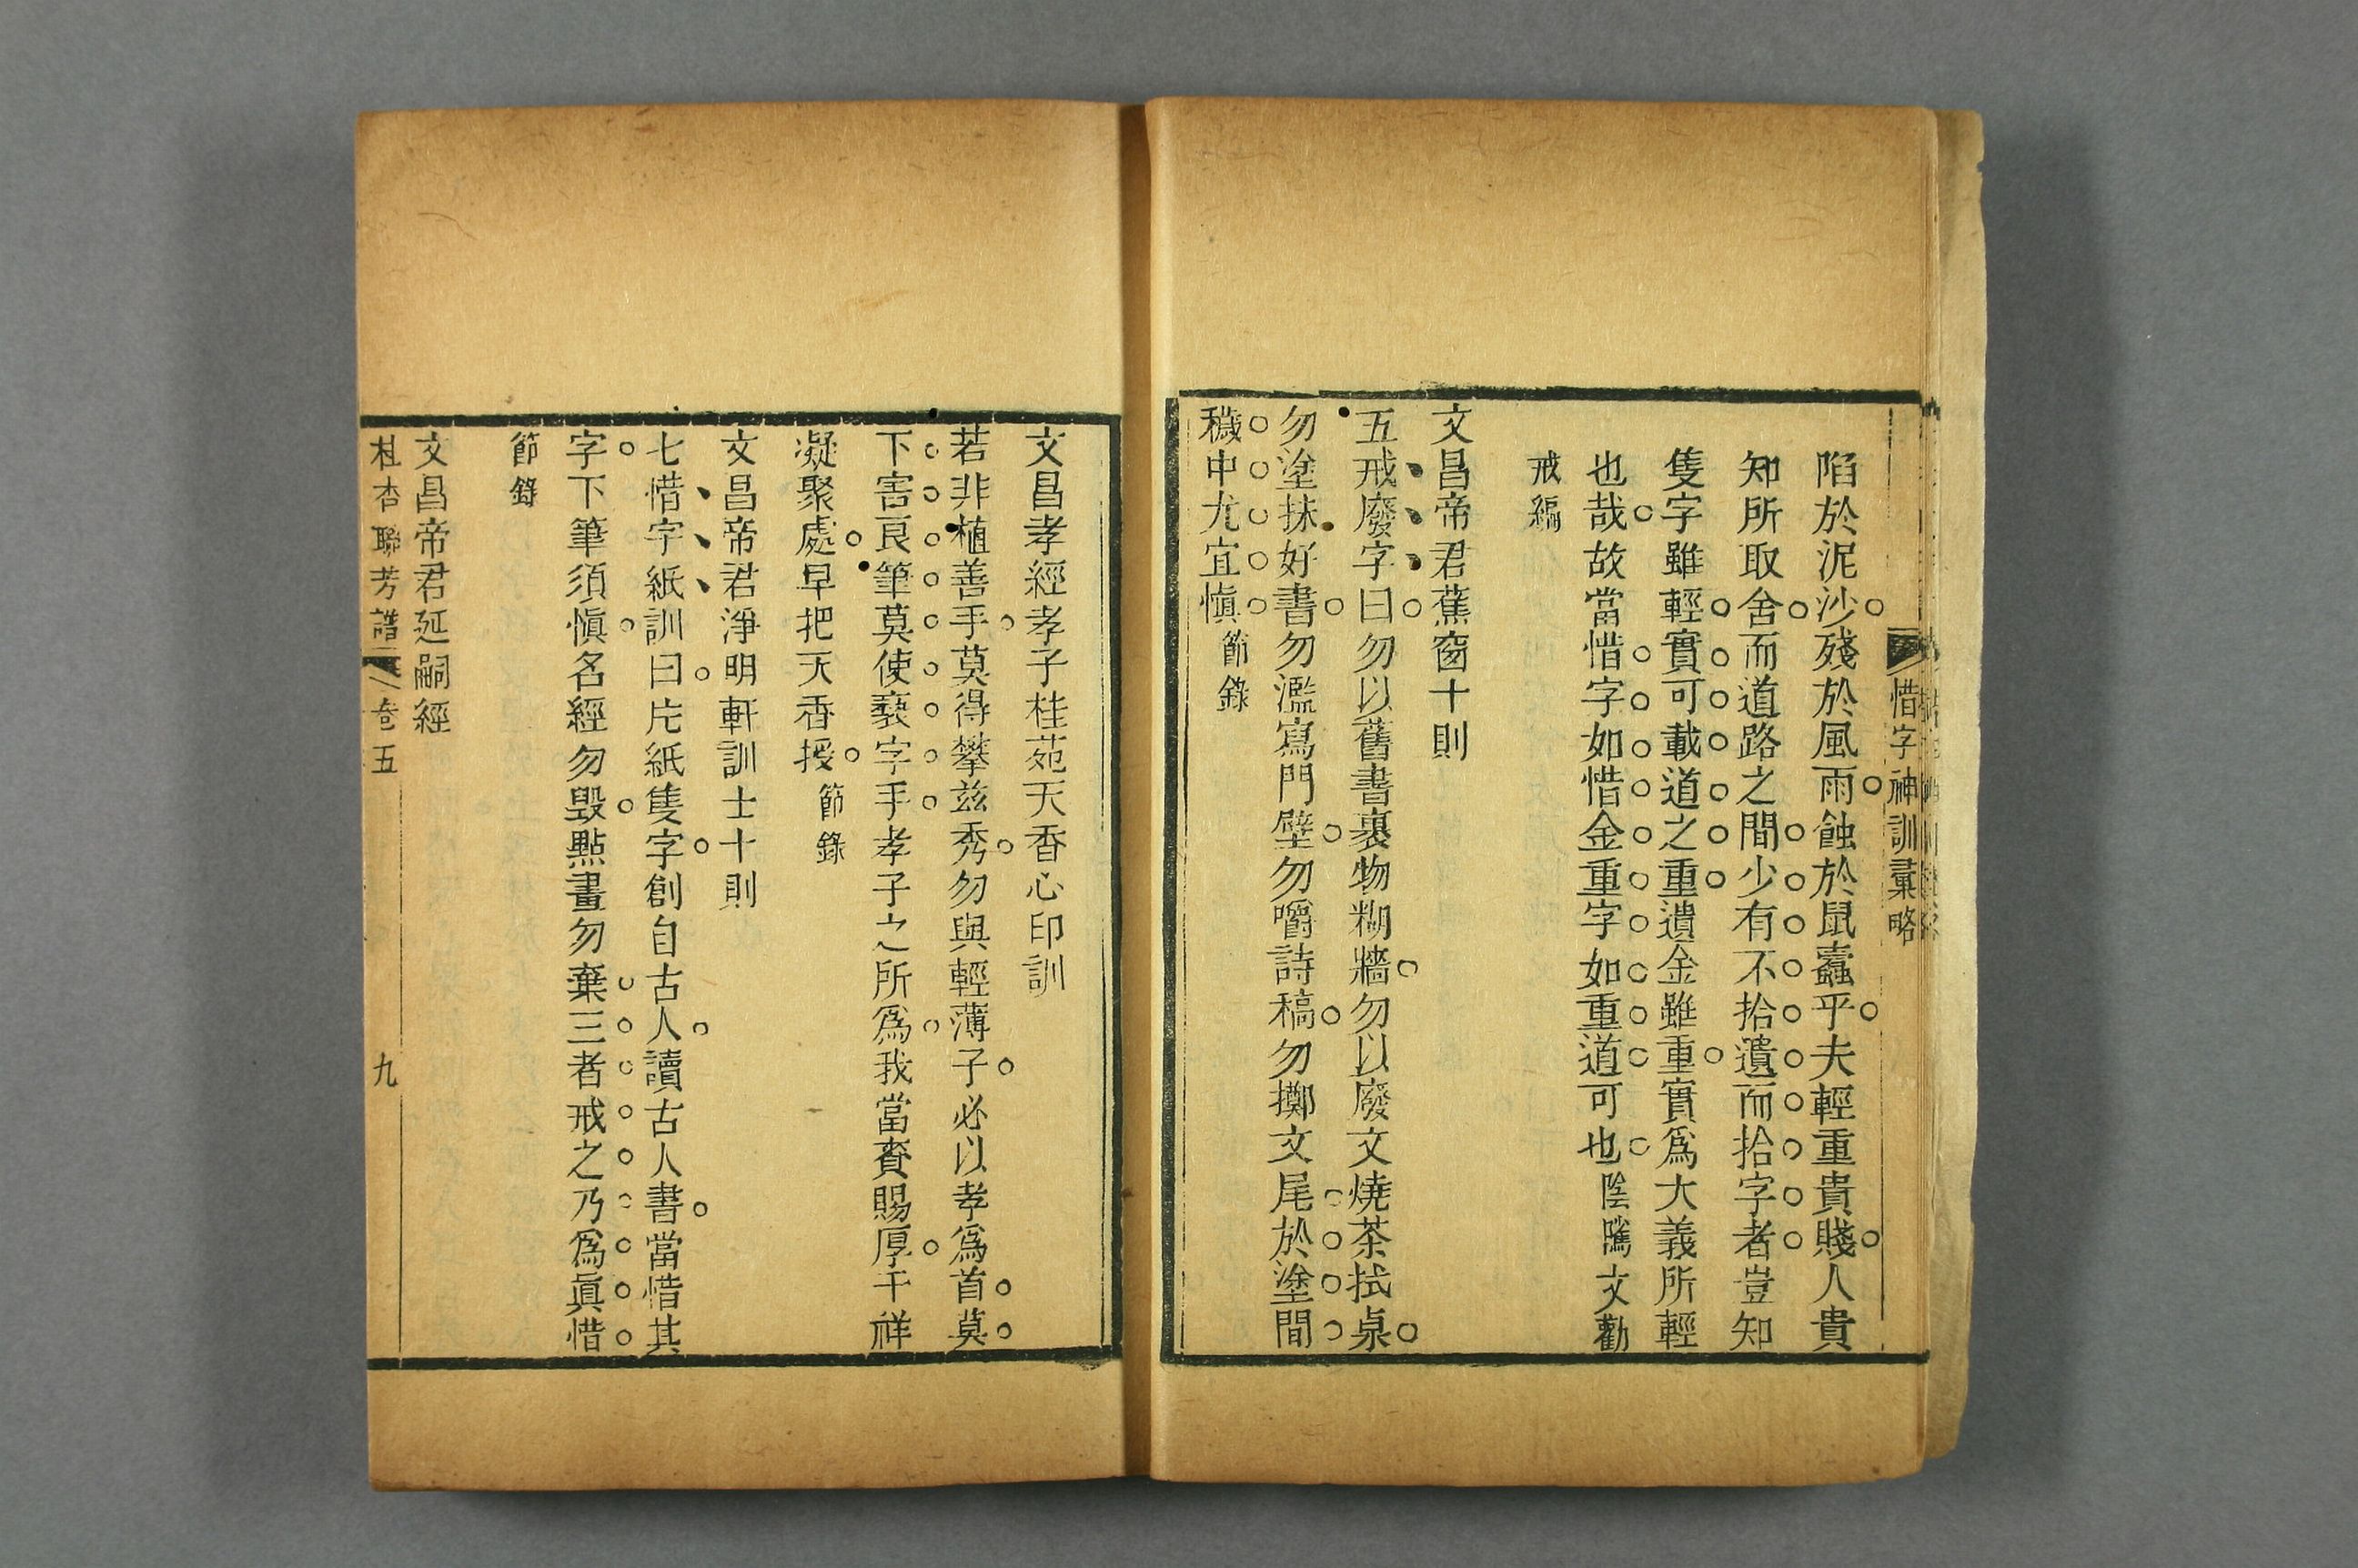 惜字神訓彚略
陷於泥沙殘於風雨蝕於鼠蠹乎夫輕重貴賤人貴
知所取舍而道路之間少有不拾遺而拾字者豈知
隻字雖輕實可載道之重遺金雖重實爲大義所輕
也哉故當惜字如惜金重字如重道可也陰隲文勸
戒編
文昌帝君蕉窗十則
五戒廢字曰勿以舊書裹物糊牆勿以廢文燒茶拭桌
勿塗抹好書勿濫寫門壁勿嚼詩稿勿擲文尾於塗間
穢中尤宜愼節錄
文昌孝經孝子桂苑天香心印訓
若非植善手莫得攀兹秀勿與輕薄子必以孝爲首莫
下害良筆莫使褻字手孝子之所爲我當賚賜厚千祥
凝聚處早把天香授節錄
文昌帝君淨明軒訓士十則
七惜字紙訓曰片紙隻字創自古人讀古人書當惜其
字下筆須愼名經勿毀點畫勿棄三者戒之乃爲眞惜
節錄
文昌帝君延嗣經
桂杏聯芳譜 卷五 九